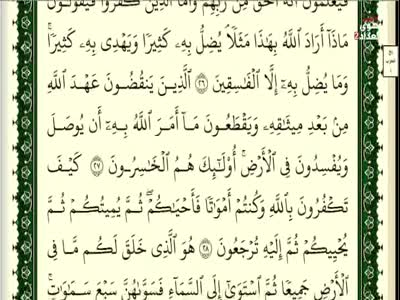 فَيَعْلَمُونَ أَنَّهُ الْحَقُّ مِن رَّبِّهِمْ وَأَمَّا الَّذِينَ كَفَرُوا فَيَقُولُونَ
مَاذَآ أَرَادَ اللَّهُ بِهَٰذَا مَثَلًا يُضِلُّ بِهِۦ كَثِيرًا وَيَهْدِى بِهِۦ كَثِيرًا ۚ
وَمَا يُضِلُّ بِهِۦٓ إِلَّا الْفَاسِقِينَ ٢٦ الَّذِينَ يَنقُضُونَ عَهْدَ اللَّهِ
مِنۢ بَعْدِ مِيثَاقِهِۦ وَيَقْطَعُونَ مَآ أَمَرَ اللَّهُ بِهِۦٓ أَن يُوصَلَ
وَيُفْسِدُونَ فِى الْأَرْضِ ۚ أُولَٰٓئِكَ هُمُ الْخَاسِرُونَ ٢٧ كَيْفَ
تَكْفُرُونَ بِاللَّهِ وَكُنتُمْ أَمْوَاتًا فَأَحْيَاكُمْ ۖ ثُمَّ يُمِيتُكُمْ ثُمَّ
يُحْيِيكُمْ ثُمَّ إِلَيْهِ تُرْجَعُونَ ٢٨ هُوَ الَّذِى خَلَقَ لَكُم مَّا فِى
الْأَرْضِ جَمِيعًا ثُمَّ اسْتَوَىٰٓ إِلَى السَّمَآءِ فَسَوَّىٰهُنَّ سَبْعَ سَمَٰوَٰتٍ ۚ